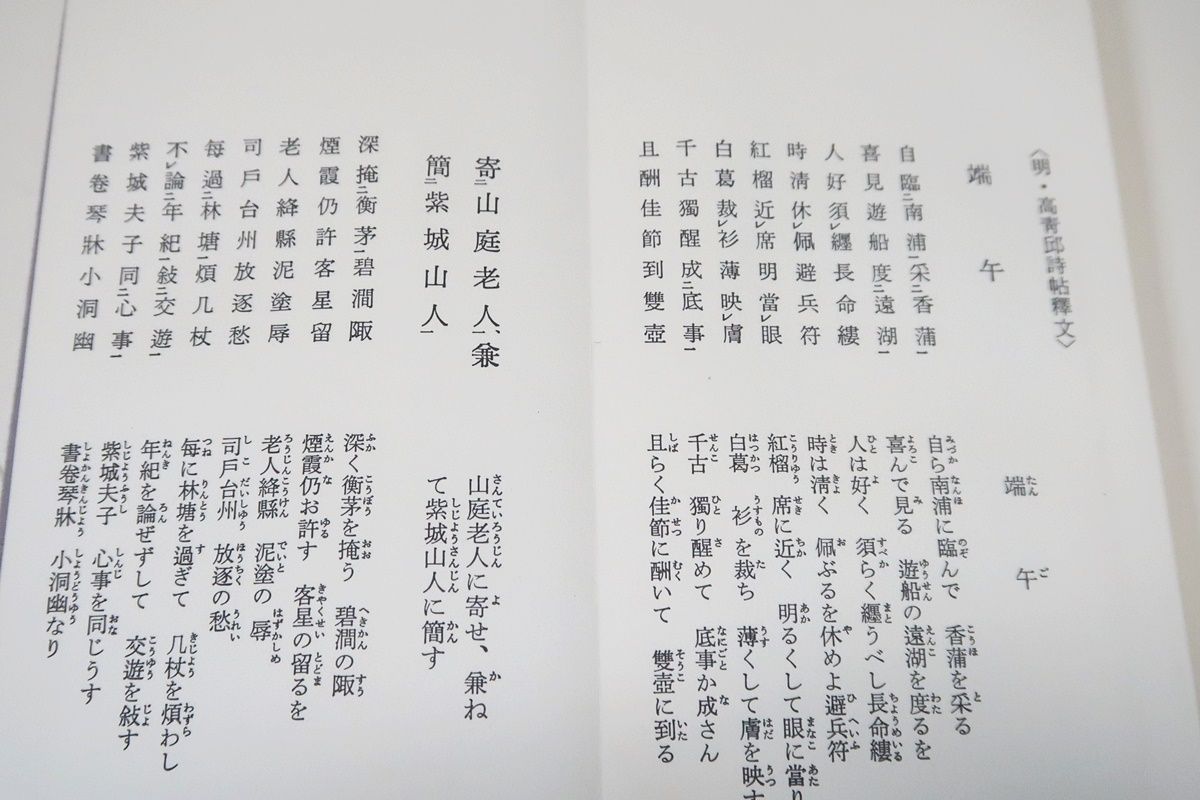 〈明・高靑邱詩帖釋文〉
端午
自臨㆓南浦㆒采㆓香蒲㆒
喜見遊船度㆓遠湖㆒
人好須㆑纒長命縷
時淸休㆑佩避兵符
紅榴近㆑席明當㆑眼
白葛裁㆑衫薄映㆑膚
千古獨醒成㆓底事㆒
且酬佳節到雙壺
端午
自ら南浦に臨んで 香蒲を采る
喜んで見る 遊船の遠湖を度るを
人は好く 須らく纒うべし長命縷
時は淸く 佩ぶるを休めよ避兵符
紅榴 席に近く 明るくして眼に當り
白葛 衫を裁ち 薄くして膚を映す
千古 獨り醒めて 底事か成さん
且らく佳節に酬いて 雙壺に到る
寄㆓山庭老人㆒、兼
簡㆓紫城山人㆒
深掩㆓衡茅㆒碧澗陬
煙霞仍許客星留
老人絳縣泥塗辱
司戶台州放逐愁
每過㆓林塘㆒煩几杖
不㆑論㆓年紀㆒敍㆓交遊㆒
紫城夫子同㆓心事㆒
書卷琴牀小洞幽
山庭老人に寄せ、兼ね
て紫城山人に簡す
深く衡茅を掩う 碧澗の陬
煙霞仍お許す 客星の留るを
老人絳縣 泥塗の辱
司戶台州 放逐の愁
每に林塘を過ぎて 几杖を煩わし
年紀を論ぜずして 交遊を敍す
紫城夫子 心事を同じうす
書卷琴牀 小洞幽なり